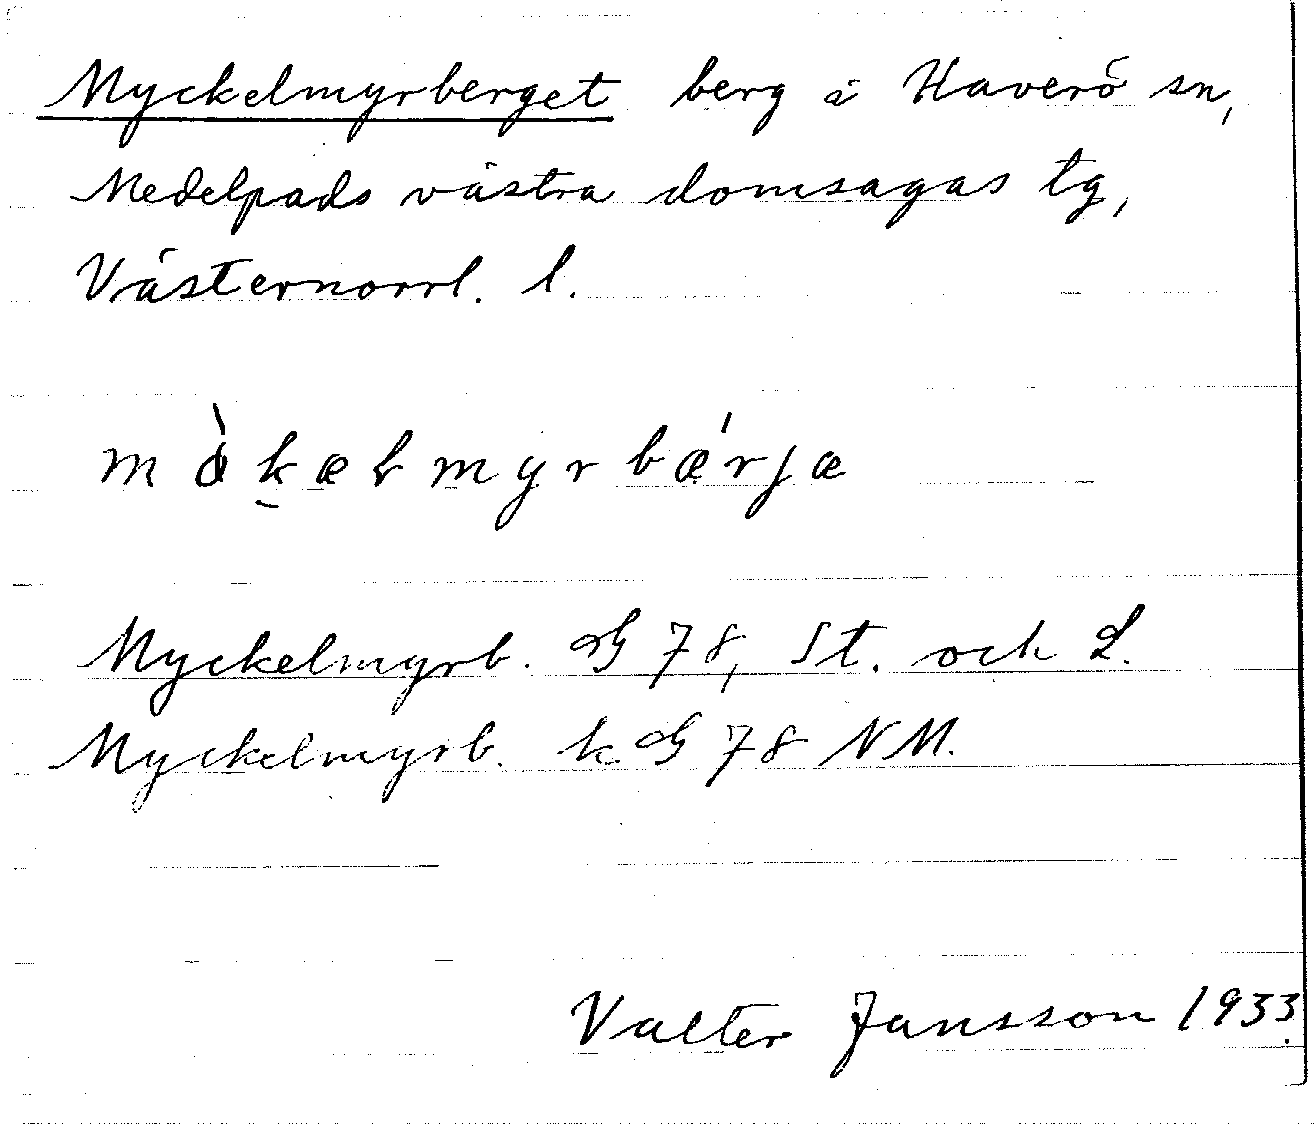 Myckelmyrberget berg i Haverö sn,
Medelpads västra domsagas tg,
Västernorrl. l.
myrbærjæ
Myckelmyrb. G 78, St. och L.
Myckelmyrb. k G 78 NM.
Valter Jansson 1933.